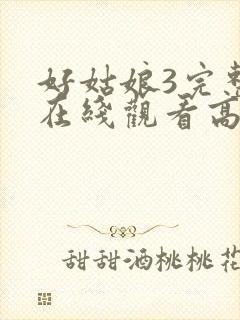 好姑娘3完整
在綫觀看高
甜甜酒桃桃花